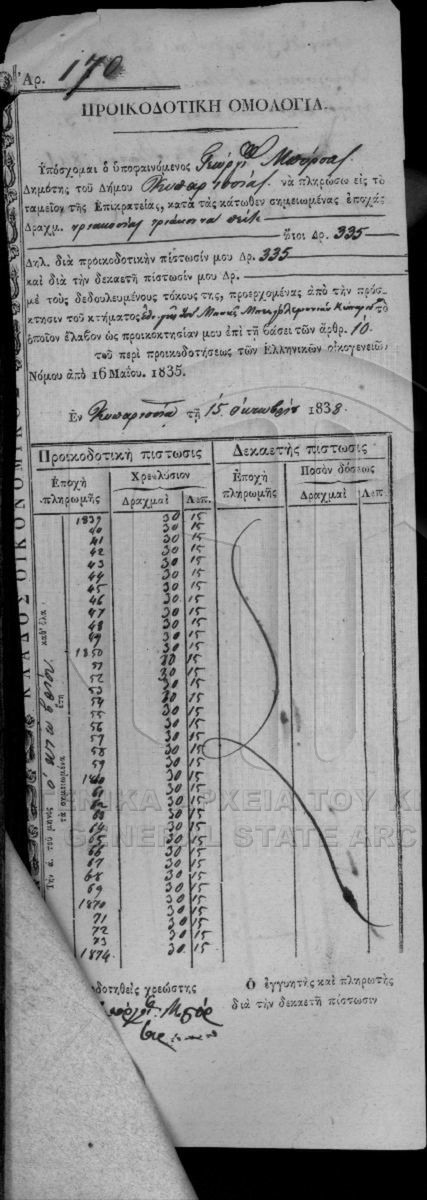 Ἀρ. 170
ΠΡΟΙΚΟΔΟΤΙΚΗ ΟΜΟΛΟΓΙΑ.
Ὑπόσχομαι ὁ ὑποφαινόμενος Γεώργι Μπόρσας
Δημότης τοῦ Δήμου Κυπαρισσίας νὰ πληρώσω εἰς τὸ
ταμεῖον τῆς Ἐπικρατείας, κατὰ τὰς κάτωθεν σημειωμένας ἐποχὰς
Δραχμ. τριακοσίας τριάκοντα πέντε ἤτοι Δρ. 335
Δηλ. διὰ προικοδοτικὴν πίστωσίν μου Δρ. 335
καὶ διὰ τὴν δεκαετῆ πίστωσίν μου Δρ.
μὲ τοὺς δεδουλευμένους τόκους της, προερχομένας ἀπὸ τὴν πρόσ-
κτησιν τοῦ κτήματος
ὁποῖον ἔλαβον ὡς προικοκτησίαν μου ἐπὶ τῇ βάσει τῶν ἄρθρ. 10
τοῦ περὶ προικοδοτήσεως τῶν Ἑλληνικῶν οἰκογενειῶν
Νόμου ἀπὸ 16 Μαΐου. 1835.
Ἐν Κυπαρισσίᾳ τῇ 15 ὀκτωβρίου 1838.
Προικοδοτικὴ πίστωσις Δεκαετὴς πίστωσις
Ἐποχὴ πληρωμῆς Χρεωλύσιον Ἐποχὴ πληρωμῆς Ποσὸν δόσεως
Δραχμαὶ Λεπ. Δραχμαὶ Λεπ.
1839 30 15
40 30 15
41 30 15
42 30 15
43 30 15
44 30 15
45 30 15
46 30 15
47 30 15
48 30 15
49 30 15
1850 30 15
51 30 15
52 30 15
53 30 15
54 30 15
55 30 15
56 30 15
57 30 15
58 30 15
59 30 15
1860 30 15
61 30 15
62 30 15
63 30 15
64 30 15
65 30 15
66 30 15
67 30 15
68 30 15
69 30 15
1870 30 15
71 30 15
72 30 15
73 30 15
1874 30 15
Τὴν ά. τοῦ μηνὸς ὀκτωβρίου καθ' ἕκα
τὰ σημειωμένα ἔτη
ΚΛΑΔΟΣ ΟΙΚΟΝΟΜΙΚΟΣ
ΓΕΝΙΚΑ ΑΡΧΕΙΑ ΤΟΥ Κ
GENERAL STATE ARC
οδοτηθεὶς χρεώστης
Ὁ ἐγγυητὴς καὶ πληρωτὴς
διὰ τὴν δεκαετῆ πίστωσιν